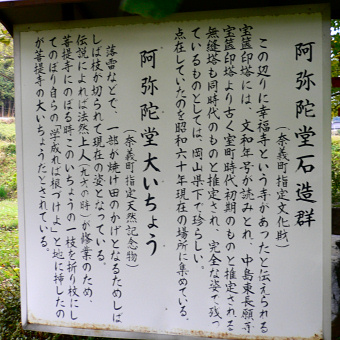 阿弥陀堂石造群
(奈義町指定文化財)
この辺りに幸福寺という寺があったと伝えられる
宝篋印塔には、文和年号が読みとれ、中島東長願寺
宝篋印塔より古く室町時代初期のものと推定される
無縫塔も同時代のものと推定され、完全な姿で残っ
ているものとしては、岡山県下でも珍らしい。
点在していたのを昭和六十年現在の場所に集めている。
阿弥陀堂大いちょう
(奈義町指定天然記念物)
落雷などで、一部が焼け田のかげとなるためしば
しば枝が切られて現在の姿となっている。
伝説によれば法然上人(九才の時)が修業のため、
菩提寺にのぼる時このいちょうの一枝を折り杖にし
てのぼり自らの「学成れば根つけよ」と地に挿したの
が菩提寺の大いちょうだとされている。